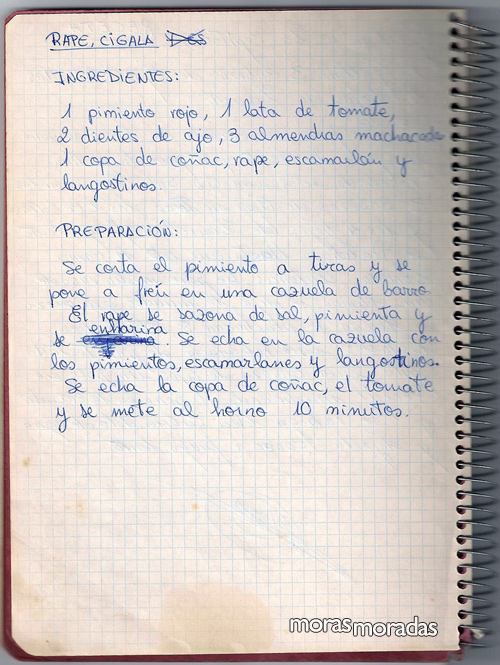 RAPE, CIGALA
INGREDIENTES:
1 pimiento rojo, 1 lata de tomate,
2 dientes de ajo, 3 almendras machacadas
1 copa de coñac, rape, escamarlán y
langostinos.
PREPARACIÓN:
Se corta el pimiento a tiras y se
pone a freír en una cazuela de barro.
El rape se sazona de sal, pimienta y
se enharina. Se echa en la cazuela con
los pimientos, escamarlanes y langostinos.
Se echa la copa de coñac, el tomate
y se mete al horno 10 minutos.
morasmoradas